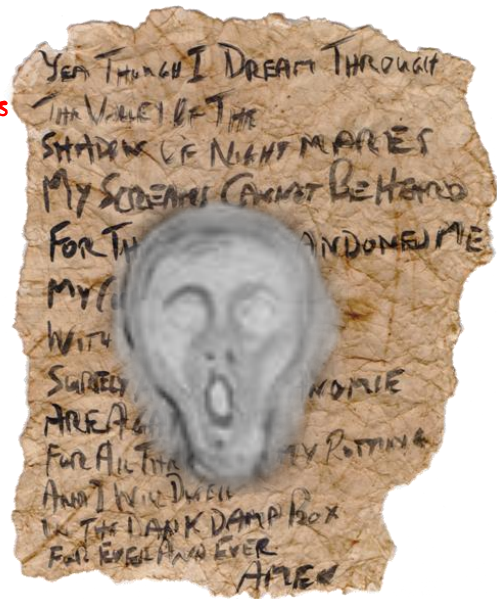 YEA THOUGH I DREAM THROUGH
S
THE VALLEY OF THE
SHADOW OF NIGHTMARES
MY SCREAMS CANNOT BE HEARD
FOR TH ANDONED ME
MY
WITH
SURELY
ARE
FOR ALL THE MY ROTTING
AND I WILL DWELL
IN THE DANK DAMP BOX
FOR EVER AND EVER
AMEN